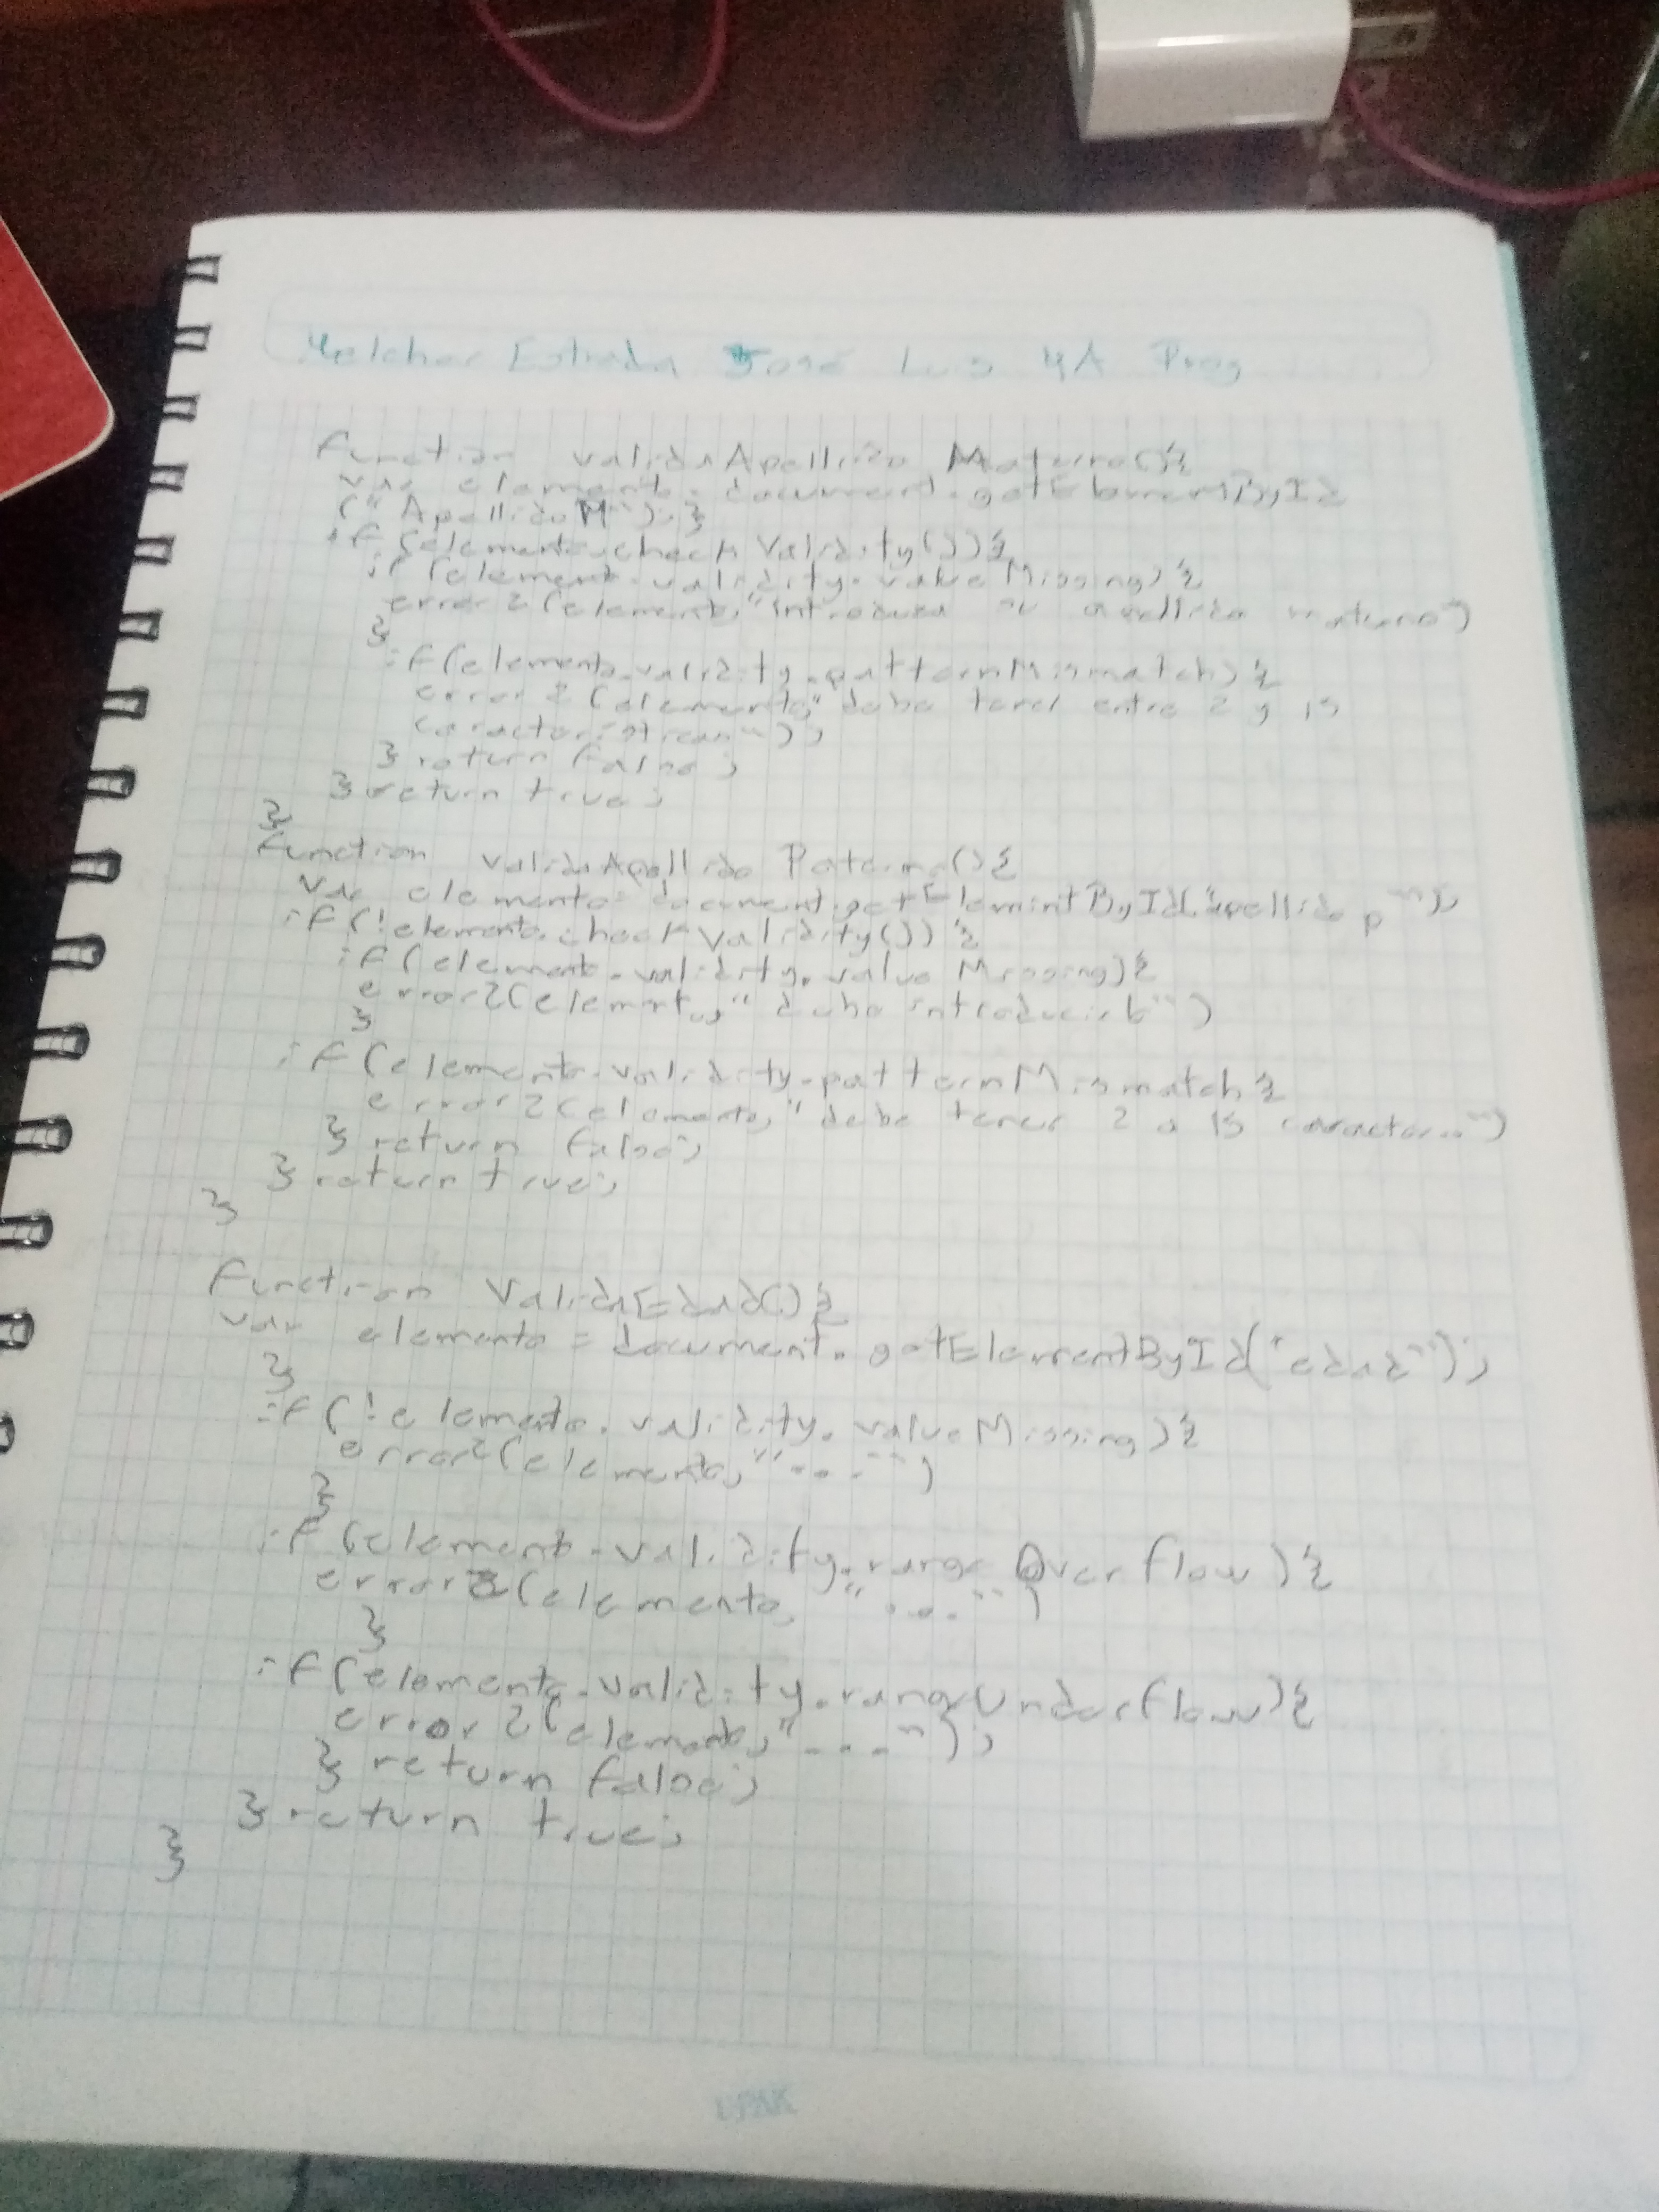 Melchor Estrada José Luis 4A Prog
function validaApellido Materno(){
var elemento= document.getElementById
("ApellidoM");}
if (elemento.check Validity()){
if (elemento.validity.value Missing){
error2(elemento,"introduzca su apellido materno")
}
if(elemento.validity.patternMismatch){
error2(elemento,"debe tener entre 2 y 15
");
} return false;
} return true;
}
function validaApellido Paterno(){
var elemento= document.getElementById("apellido p");
if(!elemento.checkValidity()){
if(elemento.validity.value Missing){
error2(elemento," debe introducir ")
}
if(elemento.validity.patternMismatch{
error2(elemento," debe tener 2 a 15 caracteres")
} return false;
} return true;
}
function ValidaEdad(){
var elemento = document.getElementById("edad");
}
if(!elemento.validity.valueMissing){
error2(elemento,"...")
}
if(elemento.validity.range Overflow){
error2(elemento, "...")
}
if(elemento.validity.rangeUnderflow){
error2(elemento,"...");
} return false;
} return true;
}